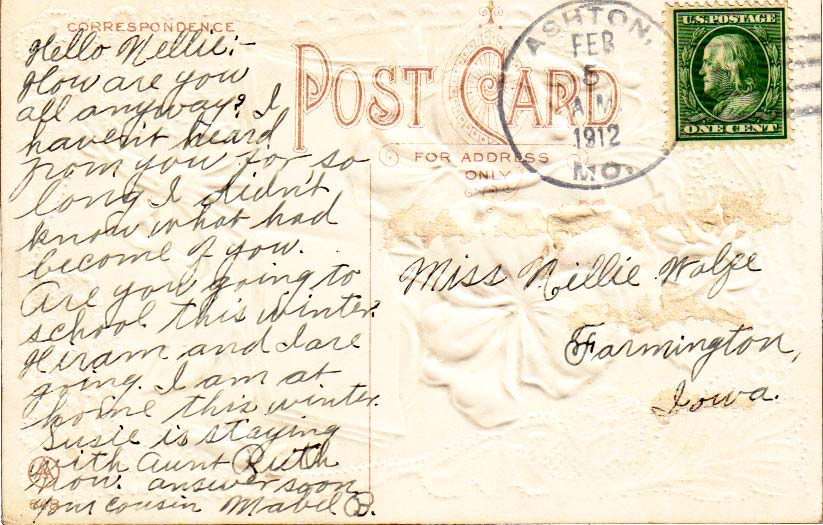 CORRESPONDENCE
Hello Nellie:-
How are you
all anyway? I
haven't heard
from you for so
long I didn't
know what had
become of you.
Are you going to
school this winter?
Hiram and I are
going. I am at
home this winter.
Susie is staying
with Aunt Ruth
now. answer soon
your cousin Mabel B.
POST CARD
FOR ADDRESS
ONLY
ASHTON,
FEB
5
A.M
1912
MO.
U.S. POSTAGE
ONE CENT
Miss Nellie Wolfe
Farmington,
Iowa.